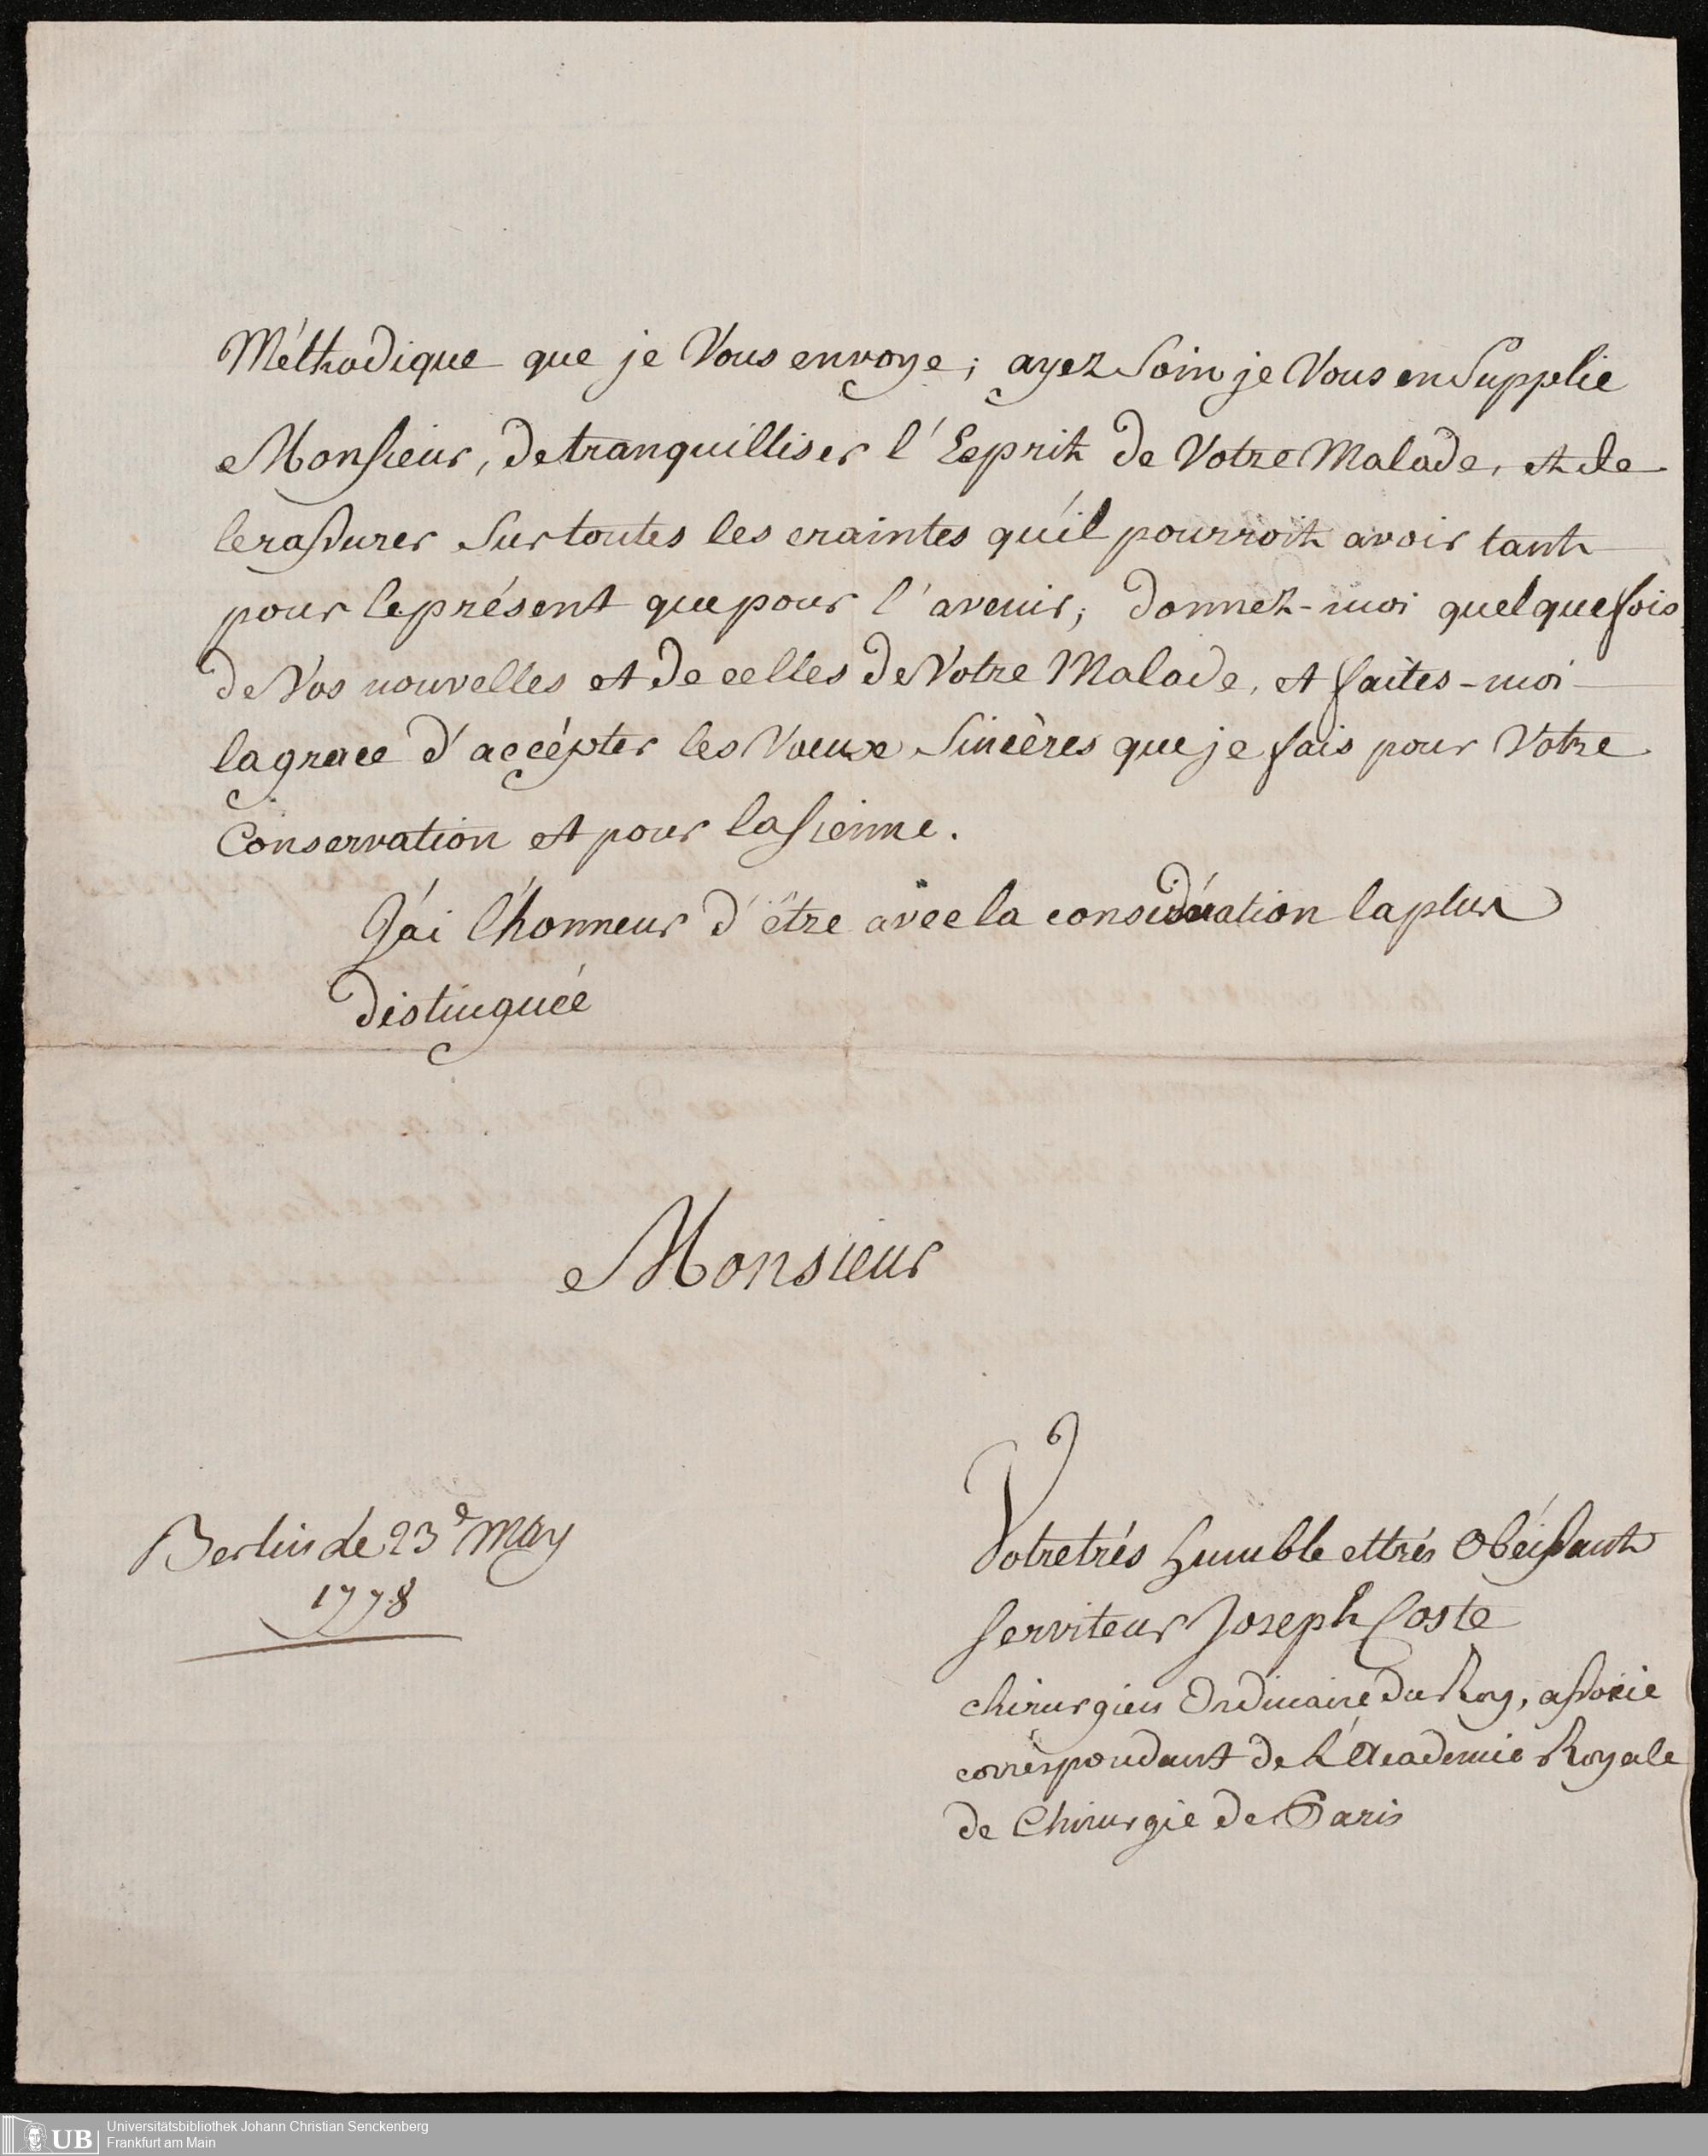 Méthodique que je Vous envoye; ayez Soin je Vous en Supplie
Monsieur, de tranquilliser l'Esprit de Votre Malade, et de
le rassurer Sur toutes les craintes qu'il pourroit avoir tant
pour le présent que pour l'avenir; donnez-moi quelque fois
de Vos nouvelles et de celles de Votre Malade, et faites-moi
la grace d'accépter les Voeux Sincères que je fais pour Votre
Conservation et pour la sienne.
J'ai l'honneur d'être avec la considération la plus
distinguée
Monsieur
Votre trés humble et trés Obéissant
serviteur Joseph Coste
chirurgien Ordinaire du Roy, associe
correspondant de L'Academie Royale
de Chirurgie de Paris
Berlin le 23e May
1778
UB
Universitätsbibliothek Johann Christian Senckenberg
Frankfurt am Main